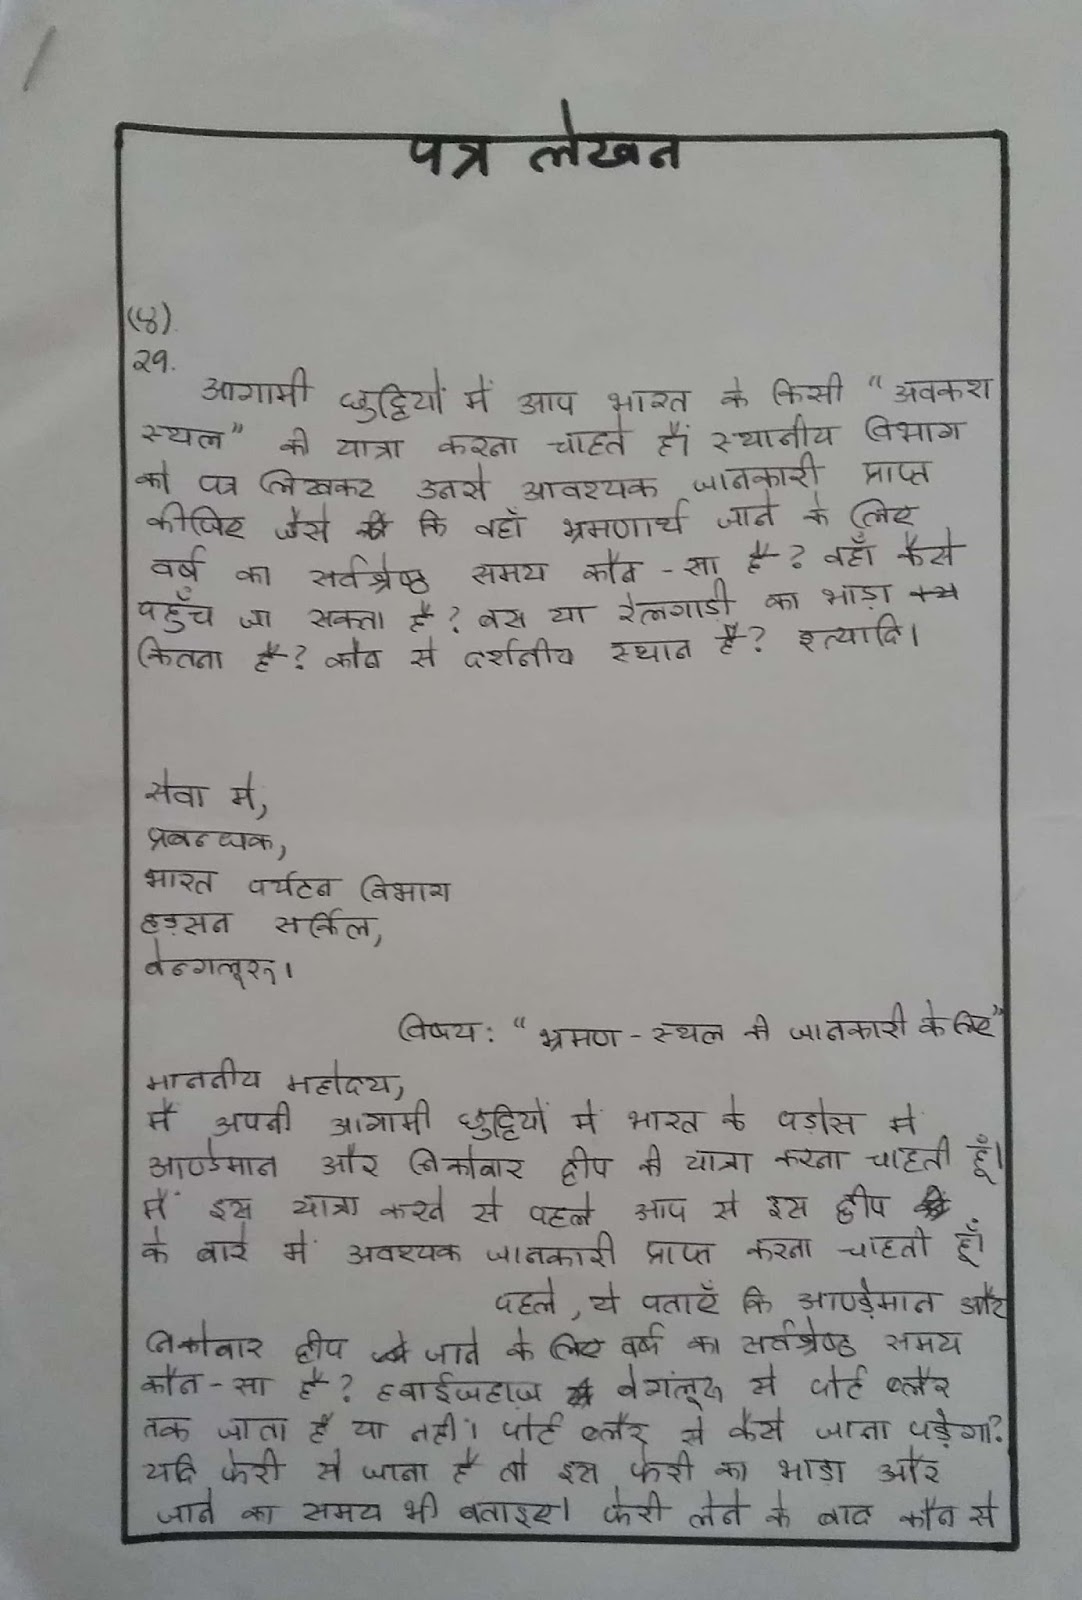 पत्र लेखन
(४).
२९.
आगामी छुट्टियों में आप भारत के किसी "अवकश
स्थल" की यात्रा करना चाहते हैं। स्थानीय विभाग
को पत्र लिखकर उनसे आवश्यक जानकारी प्राप्त
कीजिए जैसे कि वहाँ भ्रमणार्थ जाने के लिए
वर्ष का सर्वश्रेष्ठ समय कौन - सा है? वहाँ कैसे
पहुँच जा सकता है? बस या रेलगाड़ी का भाड़ा
कितना है? कौन से दर्शनीय स्थान है? इत्यादि।
सेवा में,
प्रबन्धक,
भारत पर्यटन विभाग
हड़सन सर्किल,
बेन्गलूरू।
विषय: "भ्रमण - स्थल की जानकारी के लिए"
माननीय महोदय,
मैं अपनी आगामी छुट्टियों में भारत के पड़ोस में
आण्डेमान और निकोबार द्वीप की यात्रा करना चाहती हूँ।
मैं इस यात्रा करने से पहले आप से इस द्वीप
के बारे में अवश्यक जानकारी प्राप्त करना चाहती हूँ।
पहले, ये बताएँ कि आण्ड़ेमान और
निकोबार द्वीप जाने के लिए वर्ष का सर्वश्रेष्ठ समय
कौन - सा है? हवाईजहाज़ बेगंलूरू से पोर्ट ब्लैर
तक जाता है या नहीं। पोर्ट ब्लैर से कैसे जाना पड़ेगा?
यदि फेरी से जाना है तो इस फेरी का भाड़ा और
जाने का समय भी बताइए। फेरी लेने के बाद कौन से